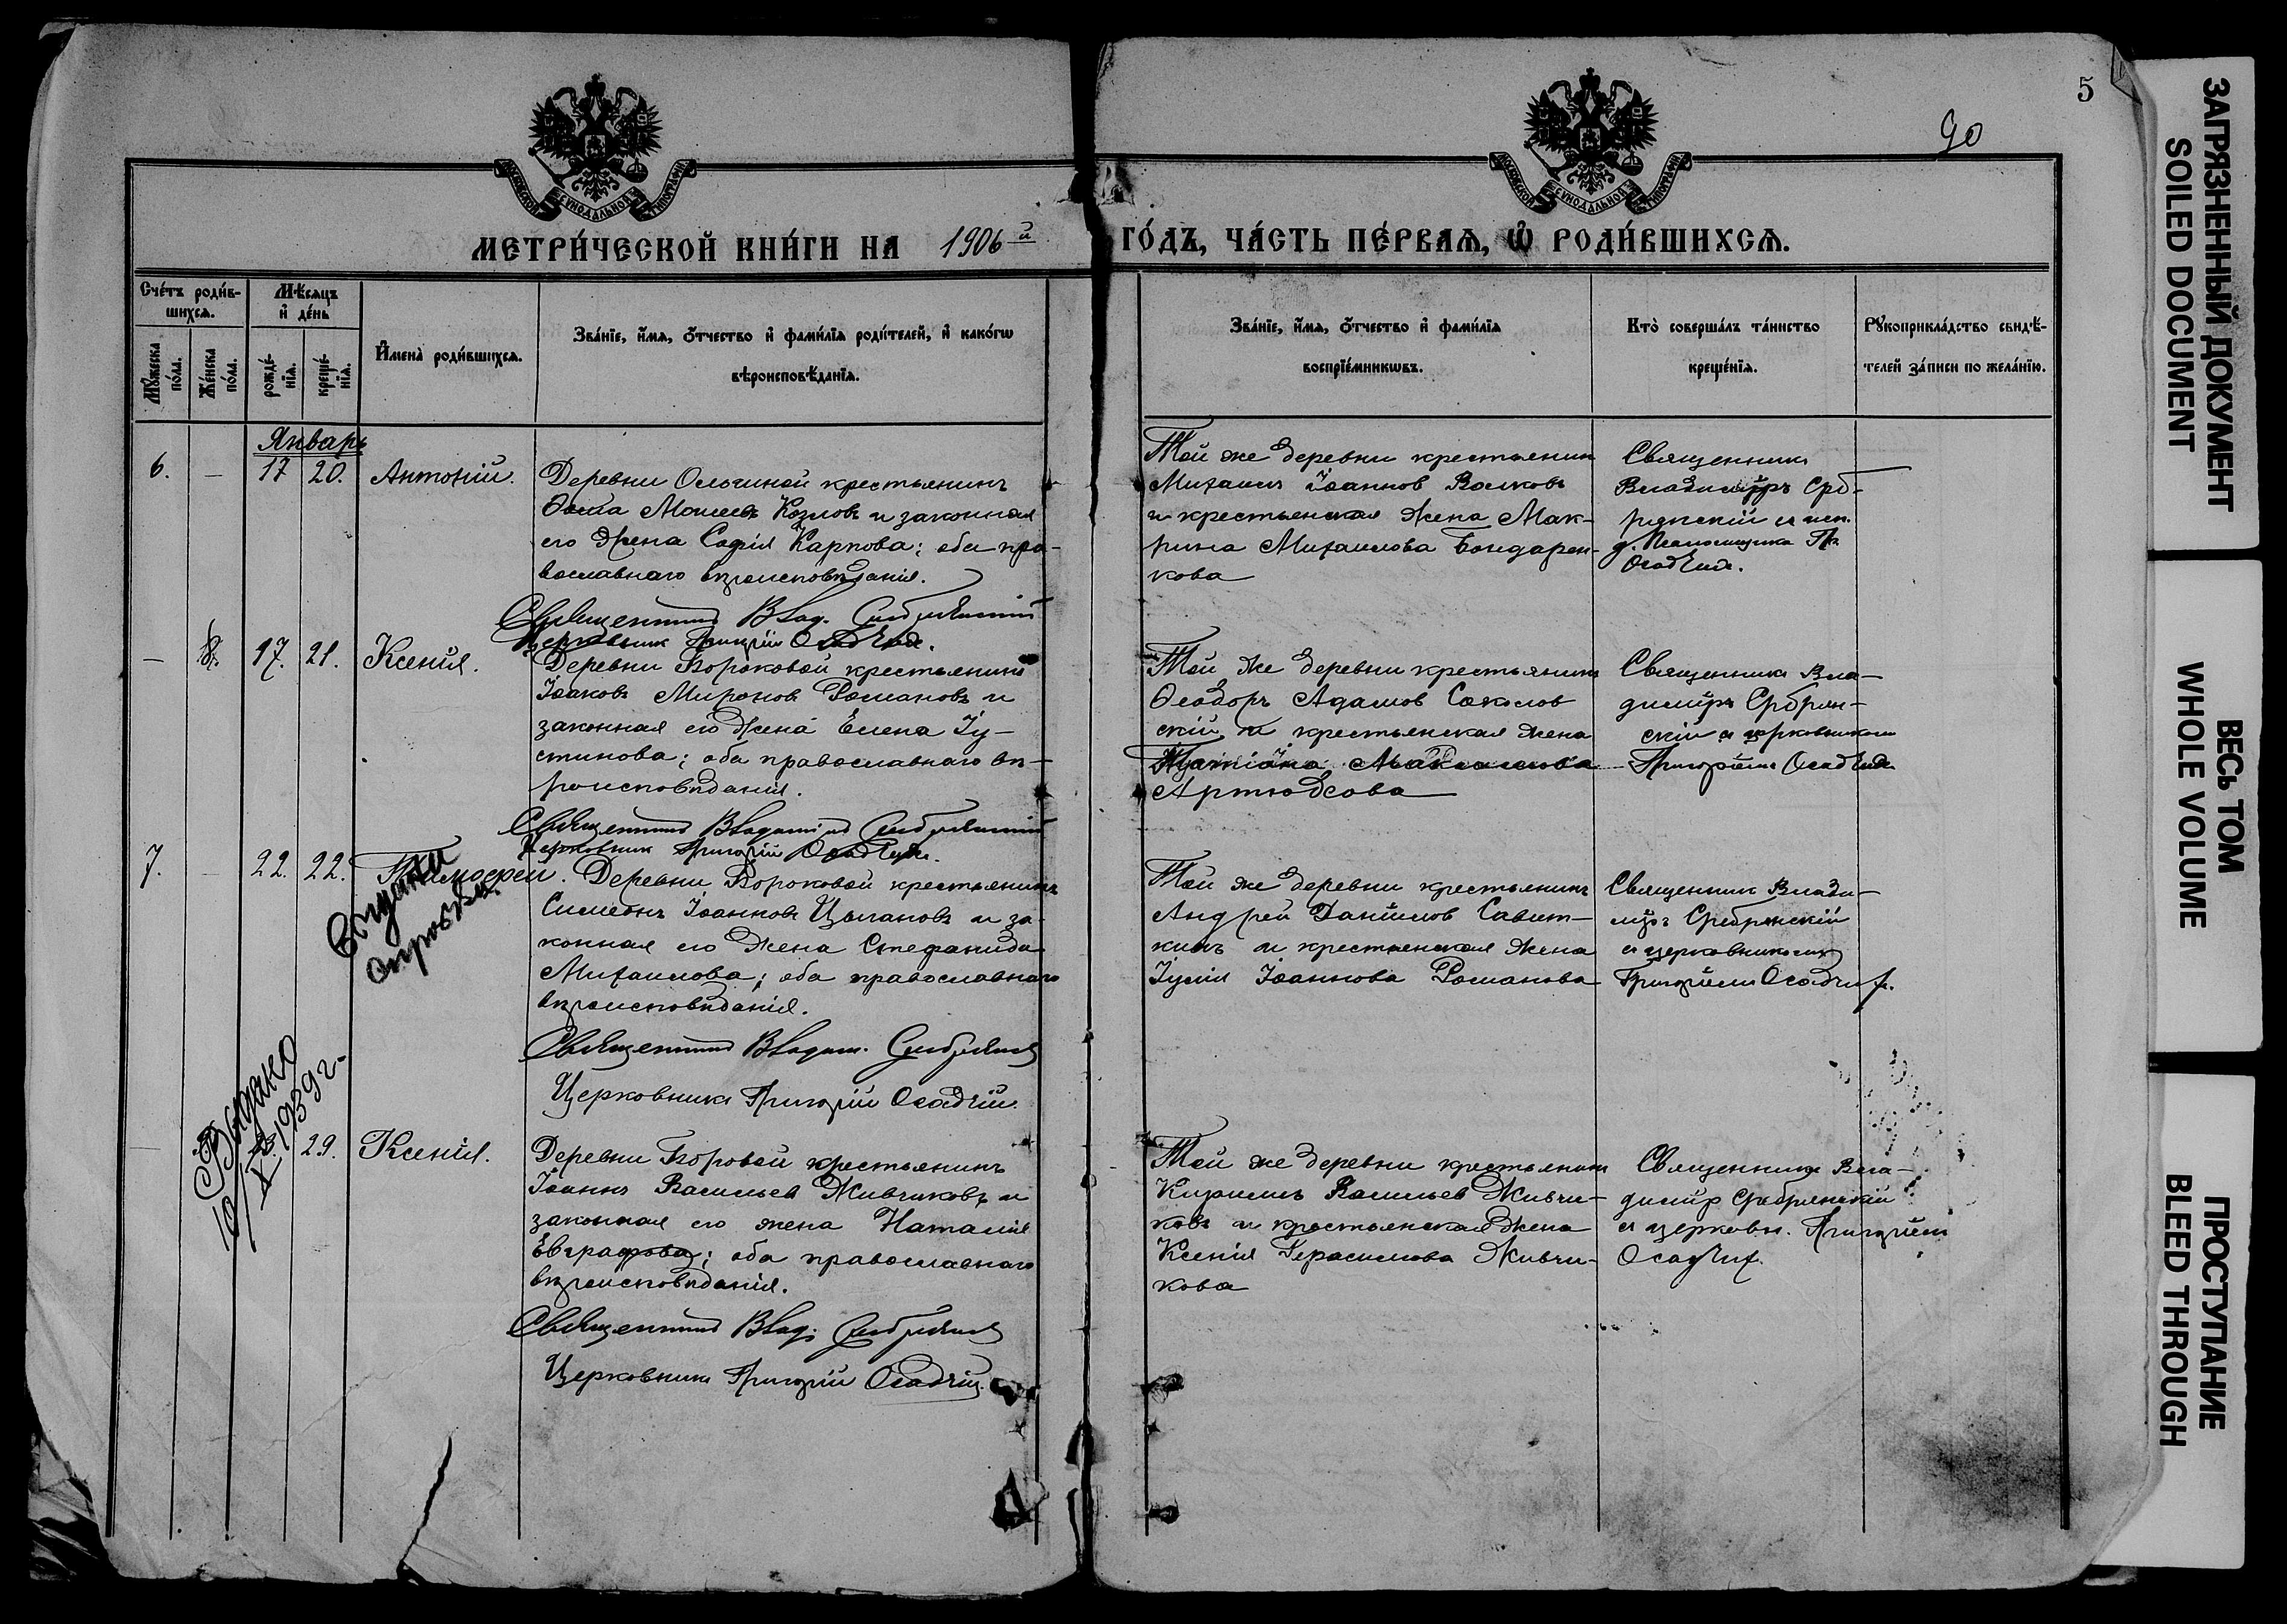 5
90
МОСКОВСКОЙ СѴНОДАЛЬНОЙ ТИПОГРАФІИ
МОСКОВСКОЙ СѴНОДАЛЬНОЙ ТИПОГРАФІИ
МЕТРИ́ЧЕСКОЙ КНИ́ГИ НА 1906й ГО́ДЪ, ЧА́СТЬ ПЕ́РВАѦ, Ѽ РОДИ́ВШИХСѦ.
Сче́тъ роди́в-
шихсѧ.
Мѣ́сѧцъ
и҆ де́нь
Мꙋ́жеска
по́ла.
Же́нска
по́ла.
рожде́-
нїѧ.
креще́-
нїѧ.
И҆мена̀ роди́вшихсѧ.
Зва́нїе, и҆́мѧ, ѻ҆́тчество и҆ фами́лїѧ роди́телей, и҆ како́гѡ
вѣроисповѣ́данїѧ.
Зва́нїе, и҆́мѧ, ѻ҆́тчество и҆ фами́лїѧ
воспрїе́мникѡвъ.
Кто̀ соверша́лъ та́инство
креще́нїѧ.
Рꙋкоприкла́дство свидѣ́-
телей за́писи по жела́нїю.
Январь
6. — 17 20. Антоній.
Деревни Ольгиной крестьянинъ
Ѳома Моисеев Козловъ и законная
его жена Софія Карпова; оба пра-
вославнаго вѣроисповѣданія.
Священникъ Влад.
Церковникъ Григорій Осадчій.
Той же деревни крестьянин
Михаилъ Іоаннов Волковъ
и крестьянская жена Мак-
рина Михаилова Бондарен-
кова
Священникъ
Владиміръ Среб-
рянскій и исп.
д. Псаломщика Гр.
Осадчій.
— 8. 17. 21. Ксенія.
Деревни Бороковой крестьянинъ
Іаковъ Миронов Романовъ и
законная его жена Елена Іу-
стинова; оба православнаго вѣ-
роисповѣданія.
Священникъ Владиміръ Сребрянскій
Церковникъ Григорій Осадчій.
Той же деревни крестьянинъ
Ѳеодоръ Адамов Соколов
скій и крестьянская жена
Татіана
Священникъ Вла-
диміръ Сребрян-
скій и церковником
Григоріем Осадчим
7. — 22. 22. Тимоѳей.
Деревни Бороковой крестьянинъ
Симеонъ Іоаннов Цыгановъ и за-
конная его жена Стефанида
Михаилова; оба православнаго
вѣроисповѣданія.
Священникъ Владим. Сребрянскій
Церковникъ Григорій Осадчій.
Той же деревни крестьянинъ
Андрей Даніилов Савит-
кинъ и крестьянская жена
Іулія Іоаннова Романова
Священник Влади-
міръ Сребрянскій
и церковникомъ
Григоріем Осадчи
справка
Выдано
10/X 1939 г.
— 29. Ксенія.
Деревни Боровой крестьянинъ
Іоаннъ Васильев Живчиковъ и
законная его жена Наталія
Евграфова; оба православнаго
вѣроисповѣданія.
Священникъ Влад. Сребрянскій
Церковникъ Григорій Осадчій.
Той же деревни крестьянин
Кириллъ Васильев Живчи-
ковъ и крестьянская жена
Ксенія Герасимова Живчи-
кова
Священникъ Вла-
диміръ Сребрянскій
и церковн. Григоріем
Осадчим.
ЗАГРЯЗНЕННЫЙ ДОКУМЕНТ
SOILED DOCUMENT
ВЕСЬ ТОМ
WHOLE VOLUME
ПРОСТУПАНИЕ
BLEED THROUGH